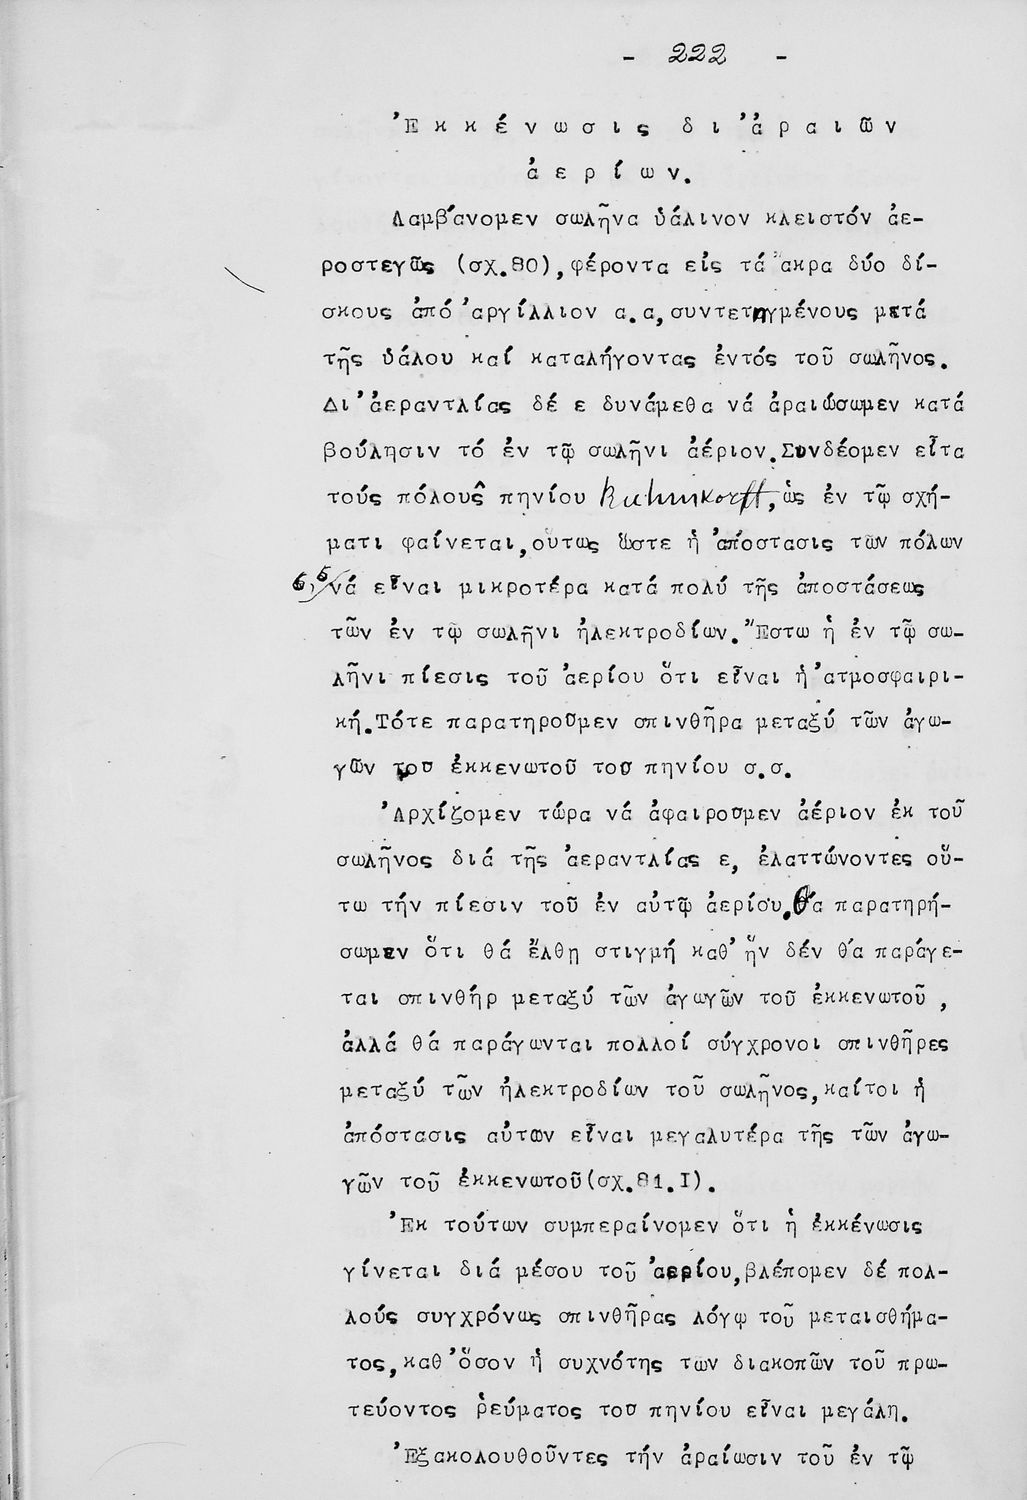 - 222 -
Ἐκκένωσις δι' ἀραιῶν
ἀερίων.
Λαμβάνομεν σωλῆνα ὑάλινον κλειστόν ἀε-
ροστεγῶς (σχ.80), φέροντα εἰς τά ἄκρα δύο δί-
σκους ἀπό ἀργίλλιον α.α, συντετηγμένους μετά
τῆς ὑάλου καί καταλήγοντας ἐντός τοῦ σωλῆνος.
Δι' ἀεραντλίας δέ ε δυνάμεθα νά ἀραιώσωμεν κατά
βούλησιν τό ἐν τῷ σωλῆνι ἀέριον. Συνδέομεν εἶτα
τούς πόλους πηνίου Ruhmkorff, ὡς ἐν τῷ σχή-
ματι φαίνεται, οὕτως ὥστε ἡ ἀπόστασις τῶν πόλων
6,5 νά εἶναι μικροτέρα κατά πολύ τῆς ἀποστάσεως
τῶν ἐν τῷ σωλῆνι ἠλεκτροδίων. Ἔστω ἡ ἐν τῷ σω-
λῆνι πίεσις τοῦ ἀερίου ὅτι εἶναι ἡ ἀτμοσφαιρι-
κή. Τότε παρατηροῦμεν σπινθῆρα μεταξύ τῶν ἀγω-
γῶν τοῦ ἐκκενωτοῦ τοῦ πηνίου σ.σ.
Ἀρχίζομεν τώρα νά ἀφαιροῦμεν ἀέριον ἐκ τοῦ
σωλῆνος διά τῆς ἀεραντλίας ε, ἐλαττώνοντες οὕ-
τω τήν πίεσιν τοῦ ἐν αὐτῷ ἀερίου. Θά παρατηρή-
σωμεν ὅτι θά ἔλθῃ στιγμή καθ' ἥν δέν θά παράγε-
ται σπινθήρ μεταξύ τῶν ἀγωγῶν τοῦ ἐκκενωτοῦ,
ἀλλά θά παράγωνται πολλοί σύγχρονοι σπινθῆρες
μεταξύ τῶν ἠλεκτροδίων τοῦ σωλῆνος, καίτοι ἡ
ἀπόστασις αὐτῶν εἶναι μεγαλυτέρα τῆς τῶν ἀγω-
γῶν τοῦ ἐκκενωτοῦ (σχ.81.Ι).
Ἐκ τούτων συμπεραίνομεν ὅτι ἡ ἐκκένωσις
γίνεται διά μέσου τοῦ ἀερίου, βλέπομεν δέ πολ-
λούς συγχρόνως σπινθῆρας λόγῳ τοῦ μεταισθήμα-
τος, καθ' ὅσον ἡ συχνότης τῶν διακοπῶν τοῦ πρω-
τεύοντος ῥεύματος τοῦ πηνίου εἶναι μεγάλη.
Ἐξακολουθοῦντες τήν ἀραίωσιν τοῦ ἐν τῷ